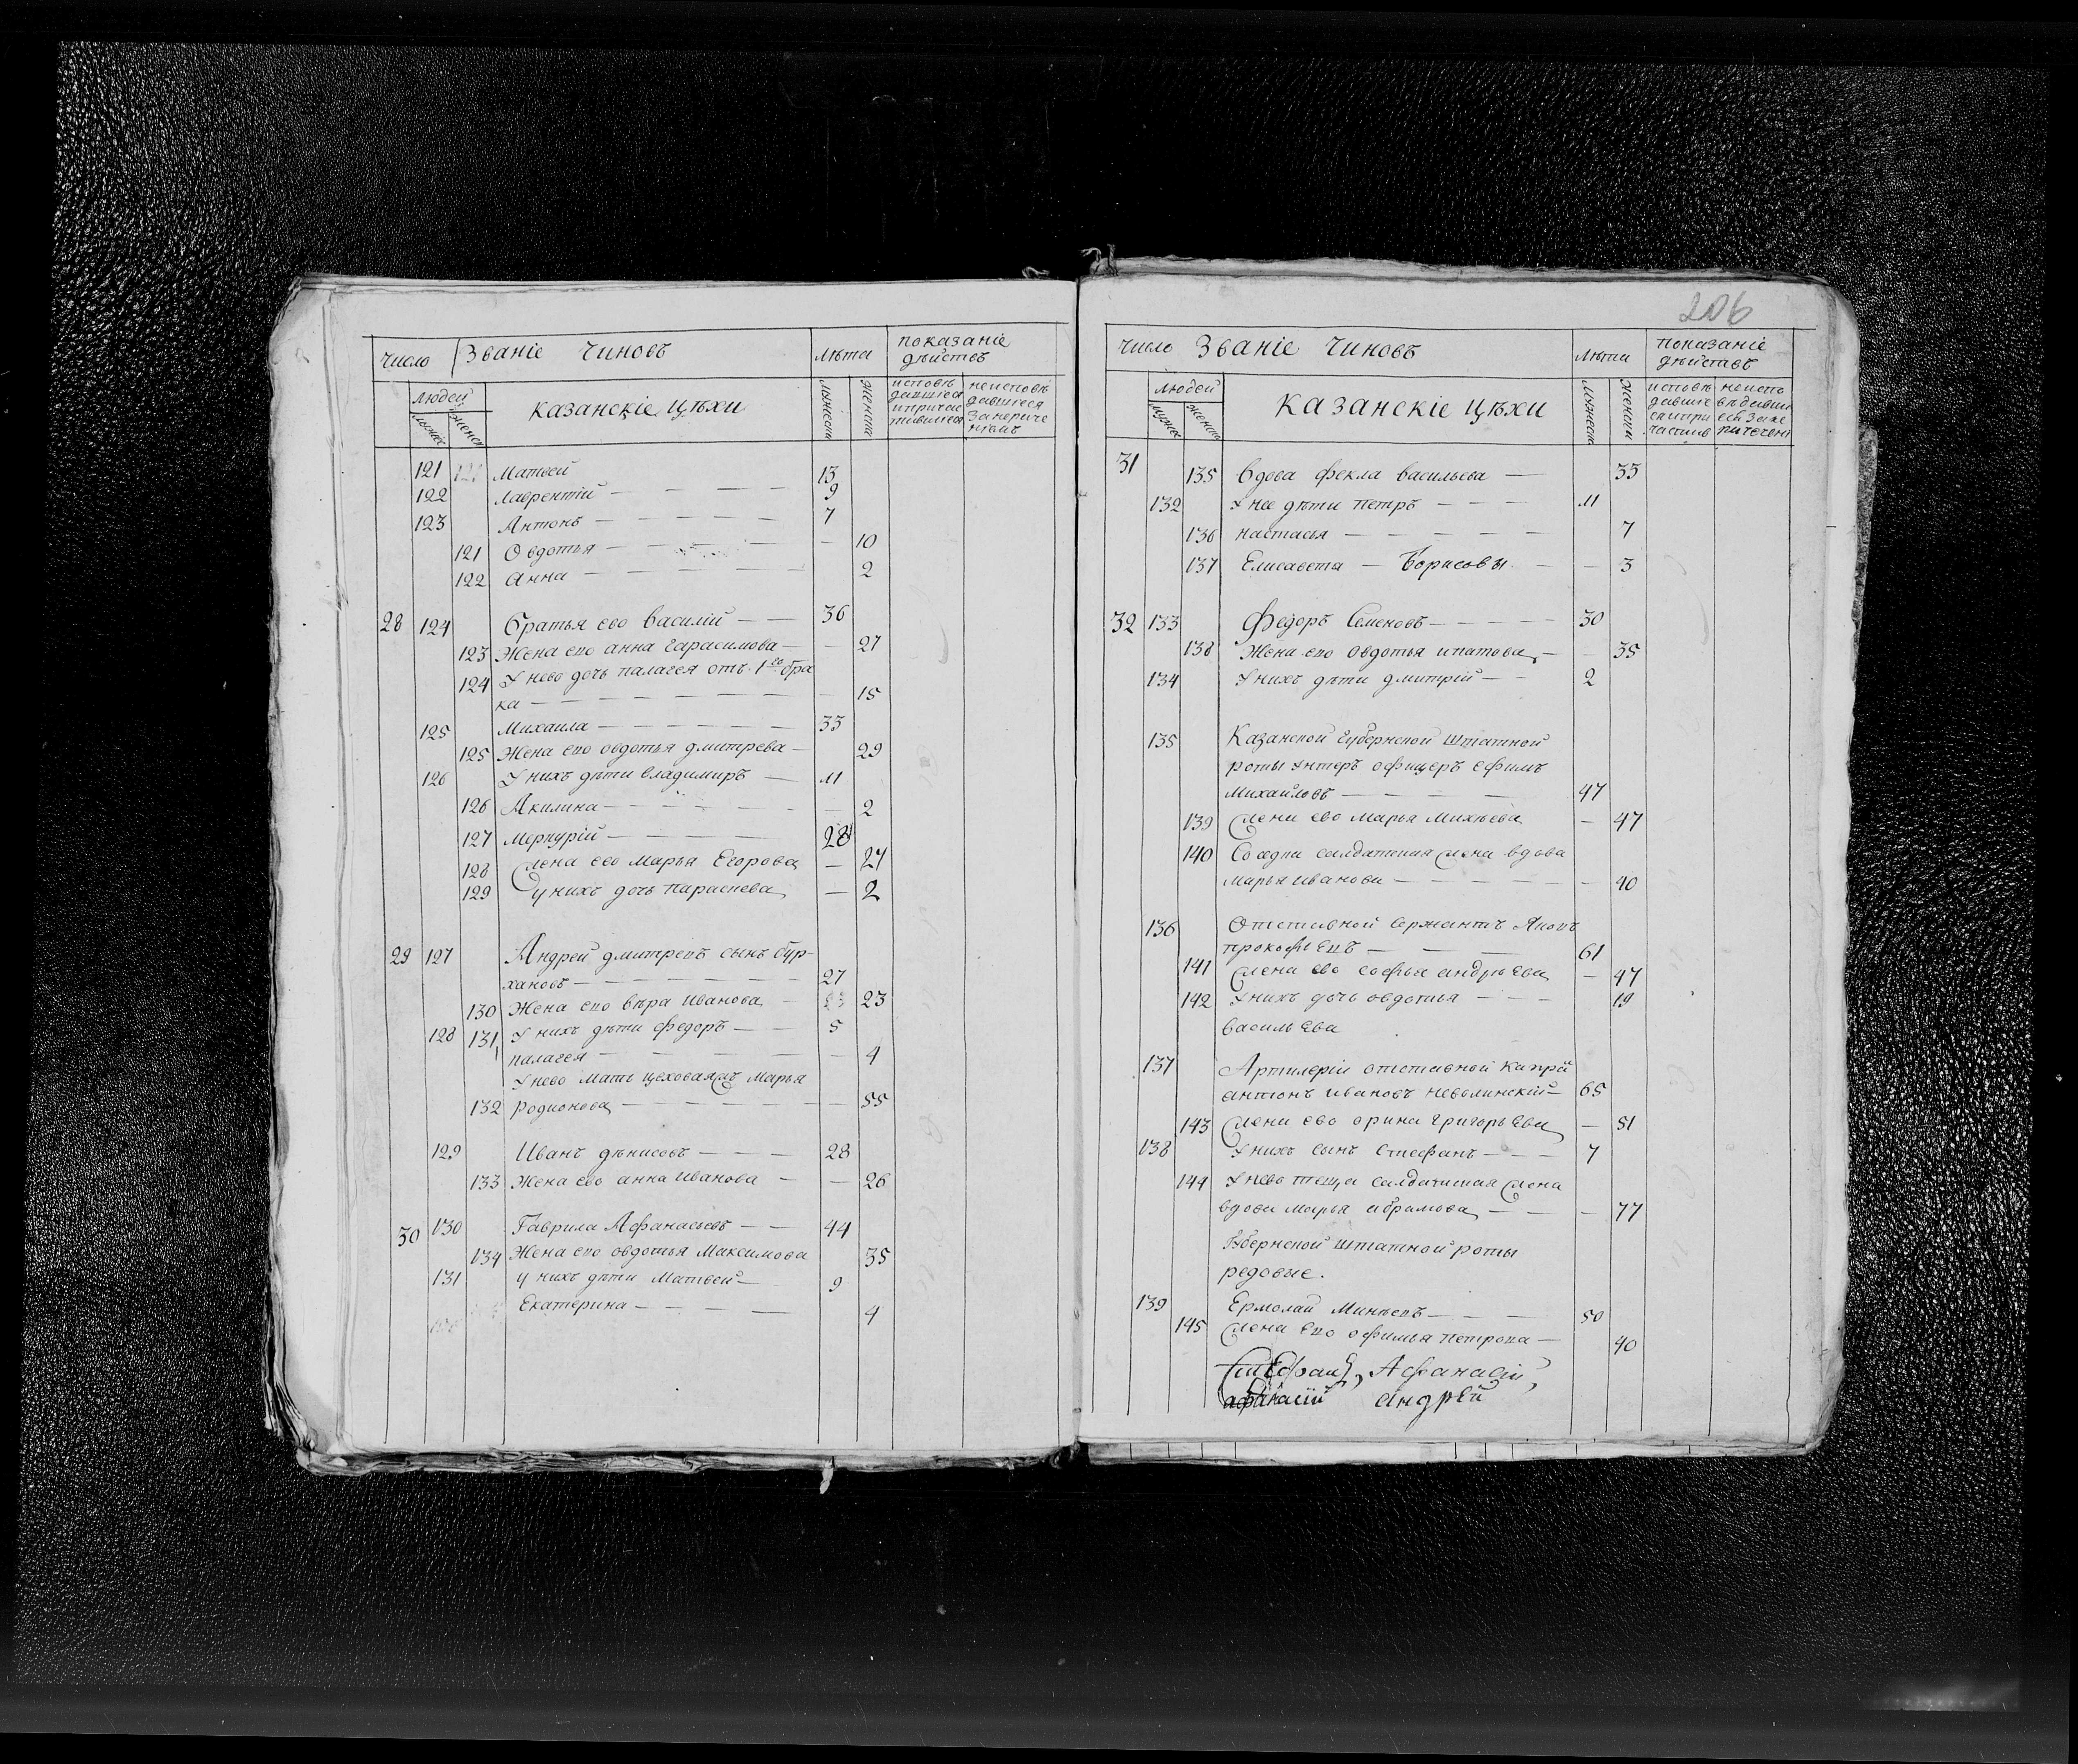 число Званіе Чиновъ лѣта показаніе дѣйствъ
людей
мужес женск
казанскіе цѣхи
мужеска женска
исповѣдавшіеся и причастившіеся
неисповѣдавшіеся
121 Матвей 13
122 лаврентій — — — — 9
123 Антонъ — — — — — 7
121 Овдотья — — — — — 10
122 анна — — — — 2
28 124 братья ево василій — — 36
123 Жена ево анна гарасимова — — 27
124 У нево дочь палагея отъ 1го бра
ка — — — — — — 15
125 Михаила — — — — — — 33
125 Жена ево овдотья дмитрева — 29
126 У нихъ дѣти владимиръ — 11
126 Акилина — — — — — 2
127 Меркурій — — — — 28
128 жена ево марья Егорова — 27
129 у нихъ дочь параскева — 2
29 127 Андрей дмитревъ сынъ бур-
хановъ — — — — — — 27
130 Жена ево вѣра иванова — 23
128 131 У нихъ дѣти федоръ — — 5
палагея — — — — — — 4
У нево мать цеховая жъ марья
132 родионова — — — — — 55
129 Иванъ денисовъ — — — 28
133 Жена ево анна иванова — — 26
30 130 Гаврила Афанасьевъ — — 44
134 Жена ево овдотья Максимова 35
131 у нихъ дѣти Матвей — 9
Екатерина — — — — 4
206
Число Званіе Чиновъ лѣта показаніе дѣйствъ
людей
мужес женск
казанскіе цѣхи
мужеска женска
31 135 вдова фекла васильева — 33
132 У нее дѣти петръ — — — 11
136 настасья — — — — — 7
137 Елисавета — Борисовы — — 3
32 133 Федоръ Семеновъ — — — — 30
138 Жена ево овдотья ипатова — — 35
134 У нихъ дѣти дмитрій — — 2
135 Казанской губернской штатной
роты унтеръ офицеръ ефимъ
михайловъ — — — — 47
139 жена ево марья михѣева — 47
140 Соседка салдатская жена вдова
марья иванова — — — — — 40
136 Отставной сержантъ Яковъ
прокофьевъ — — 61
141 жена ево софья андрѣева — 47
142 У нихъ дочь овдотья — — — 19
васильева
137 Артилеріи отставной
антонъ ивановъ неволинскій — 65
143 жена ево орина григорьева — 51
138 У нихъ сынъ стефанъ — — — 7
144 У нево теща салдатская жена
вдова марья абрамова — — — 77
Губернской штатной роты
редовые.
139 Ермолай Минѣевъ — — — 50
145 жена ево офимья петрова — 40
Стефанъ, Афанасій,
афанасій андрей